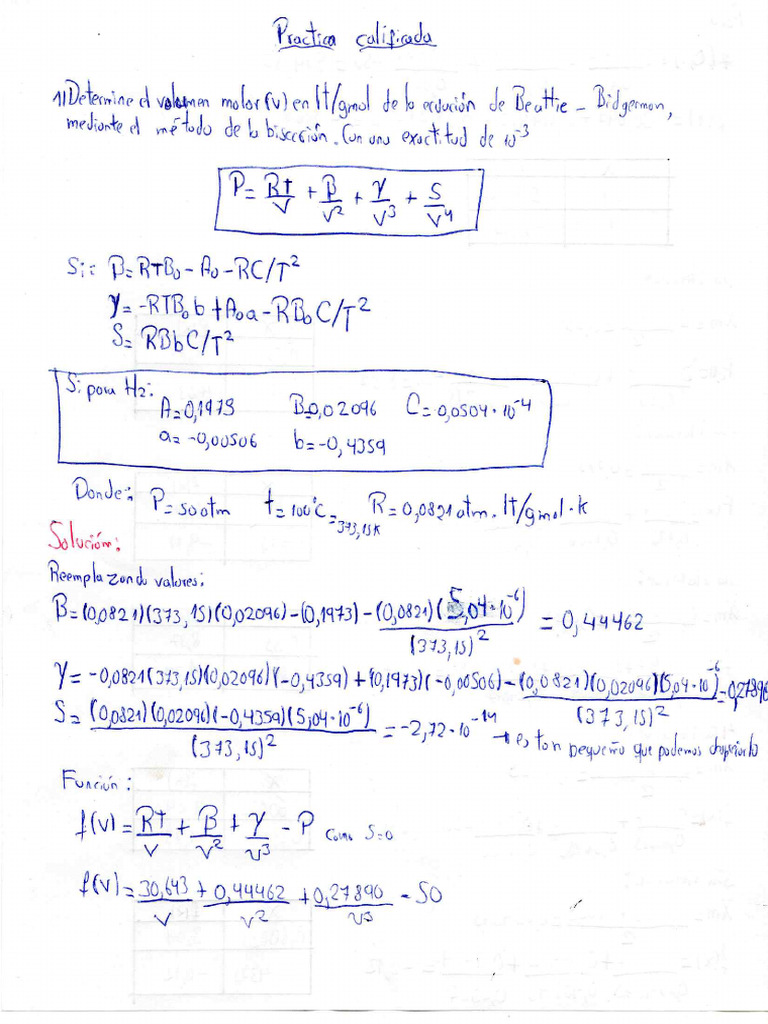 Practica calificada
1) Determine el volumen molar (v) en lt/gmol de la ecuación de Beattie - Bidgerman,
mediante el método de la bisección. Con una exactitud de 10⁻³
P = RT/V + β/V² + γ/V³ + S/V⁴
Si: β = RTB₀ - A₀ - RC/T²
γ = -RTB₀b + A₀a - RB₀C/T²
S = RBbC/T²
Si para H₂:
A = 0,1973 B = 0,02096 C = 0,0504·10⁻⁴
a = -0,00506 b = -0,4359
Donde: P = 50 atm t = 100°C = 373,15K R = 0,0821 atm.lt/gmol·K
Solución:
Reemplazando valores:
β = (0,0821)(373,15)(0,02096) - (0,1973) - (0,0821)(5,04·10⁻⁶)/(373,15)² = 0,44462
γ = -0,0821(373,15)(0,02096)(-0,4359) + (0,1973)(-0,00506) - (0,0821)(0,02096)(5,04·10⁻⁶)/(373,15)² = 0,27890
S = (0,0821)(0,02096)(-0,4359)(5,04·10⁻⁶)/(373,15)² = -2,72·10⁻¹⁴ → es tan pequeño que podemos
Función:
f(v) = RT/V + β/V² + γ/V³ - P como S=0
f(v) = 30,643/V + 0,44462/V² + 0,27890/V³ - 50